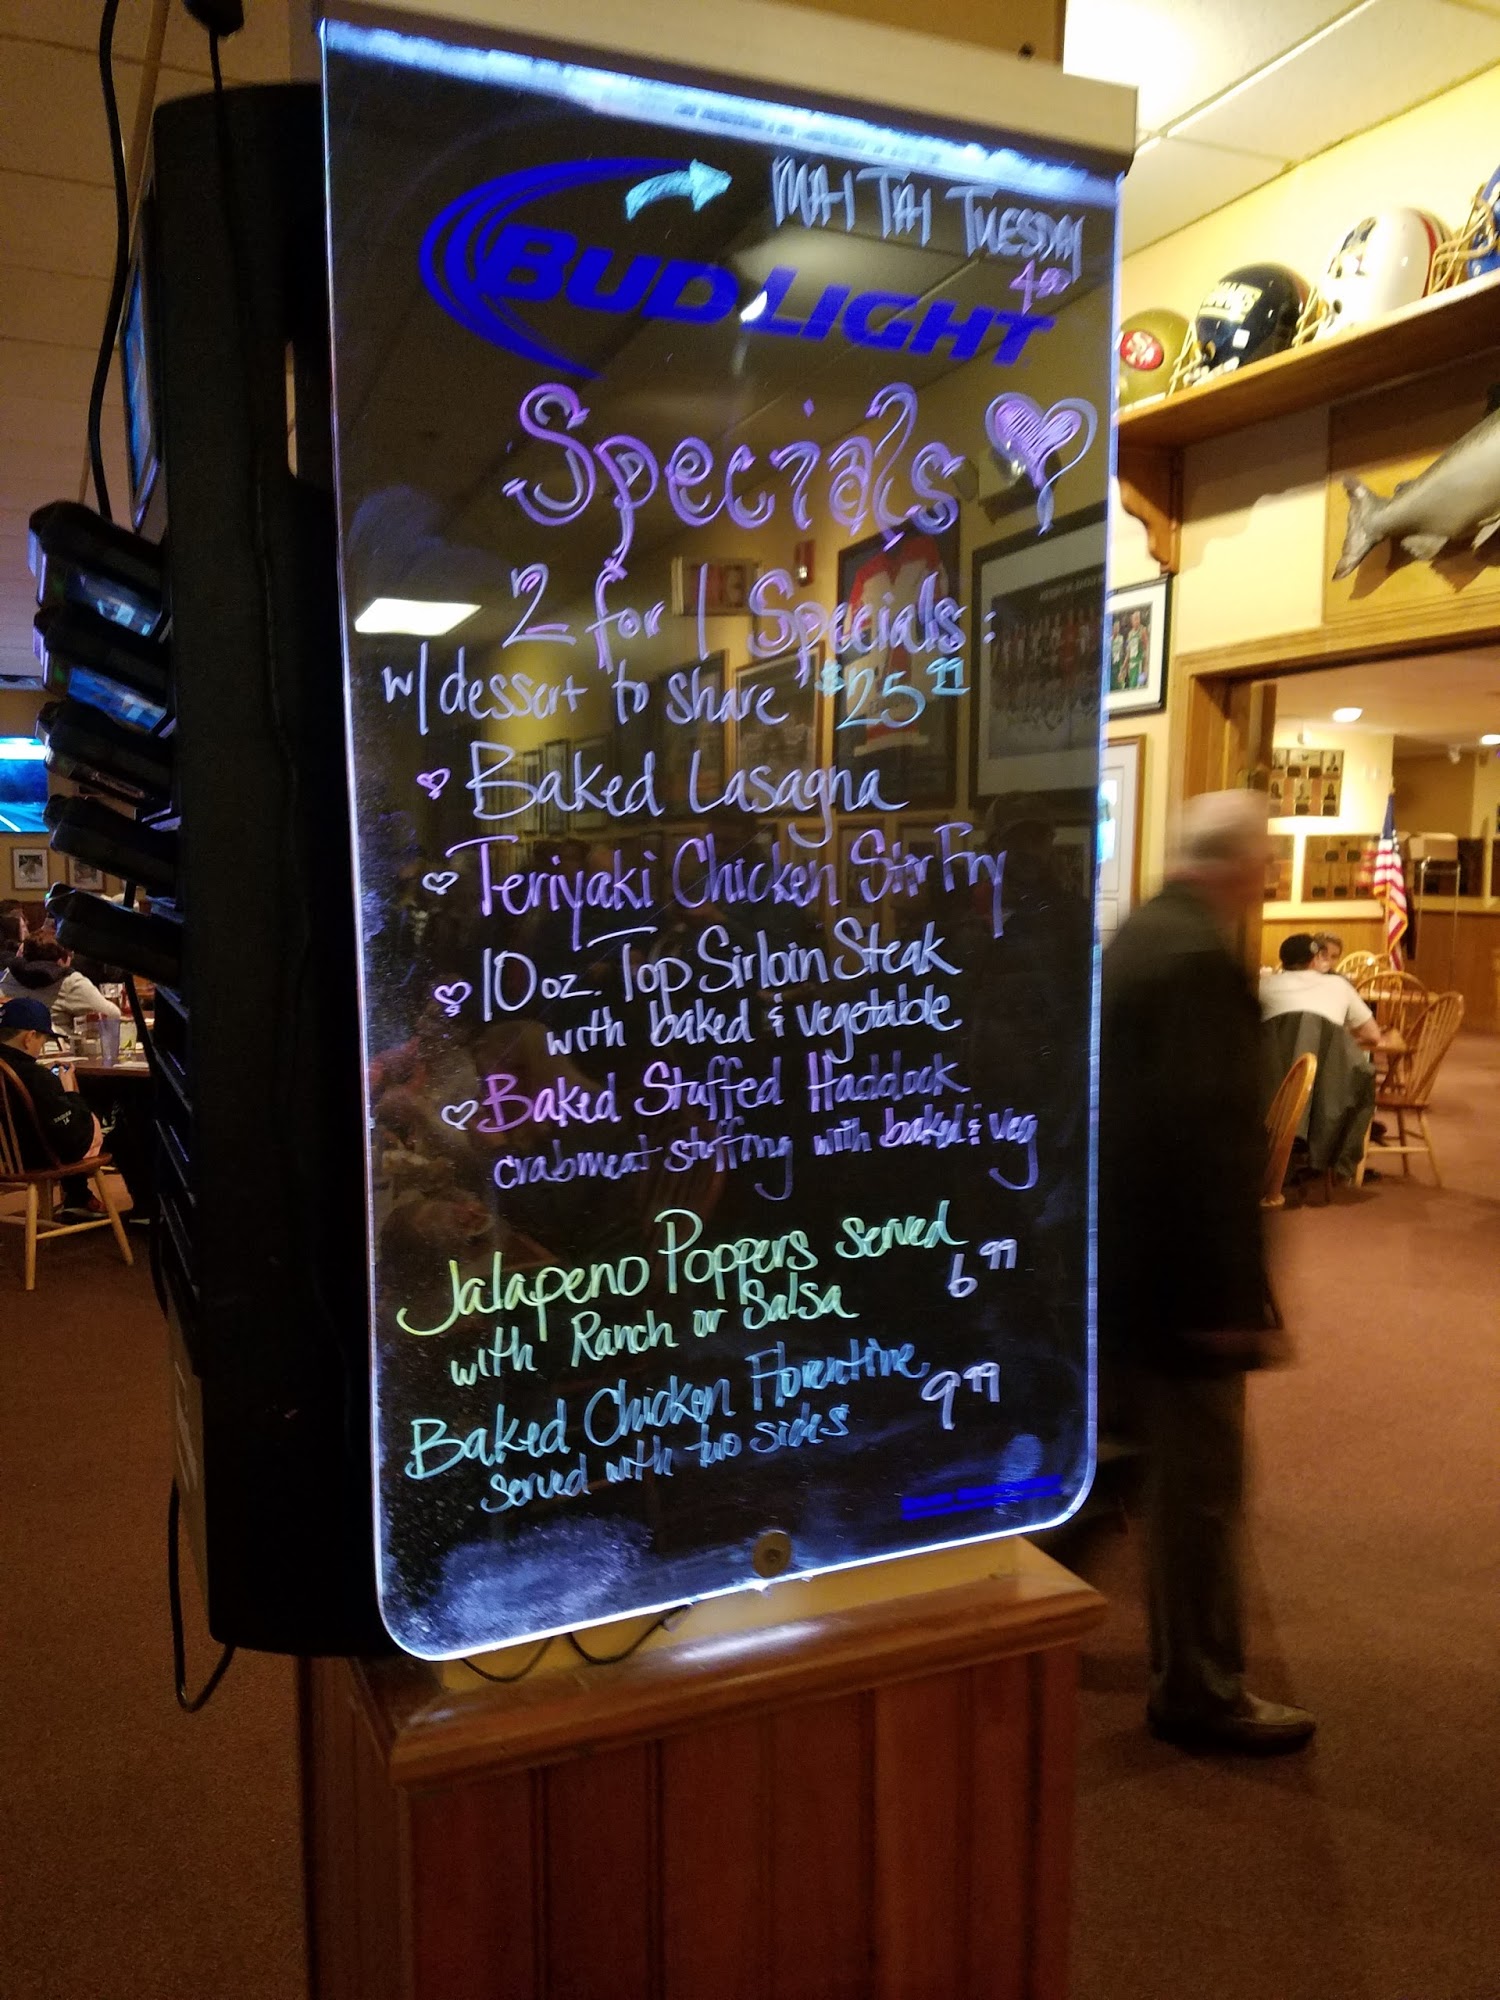 MAI TAI TUESDAY
4.00
BUD LIGHT
Specials
2 for 1 Specials:
w/ dessert to share $25.99
Baked Lasagna
Teriyaki Chicken Stir Fry
10 oz. Top Sirloin Steak
with baked & vegetable
Baked Stuffed Haddock
crabmeat stuffing with baked & veg
Jalapeno Poppers served
with Ranch or Salsa 6.99
Baked Chicken Florentine
served with two sides 9.99